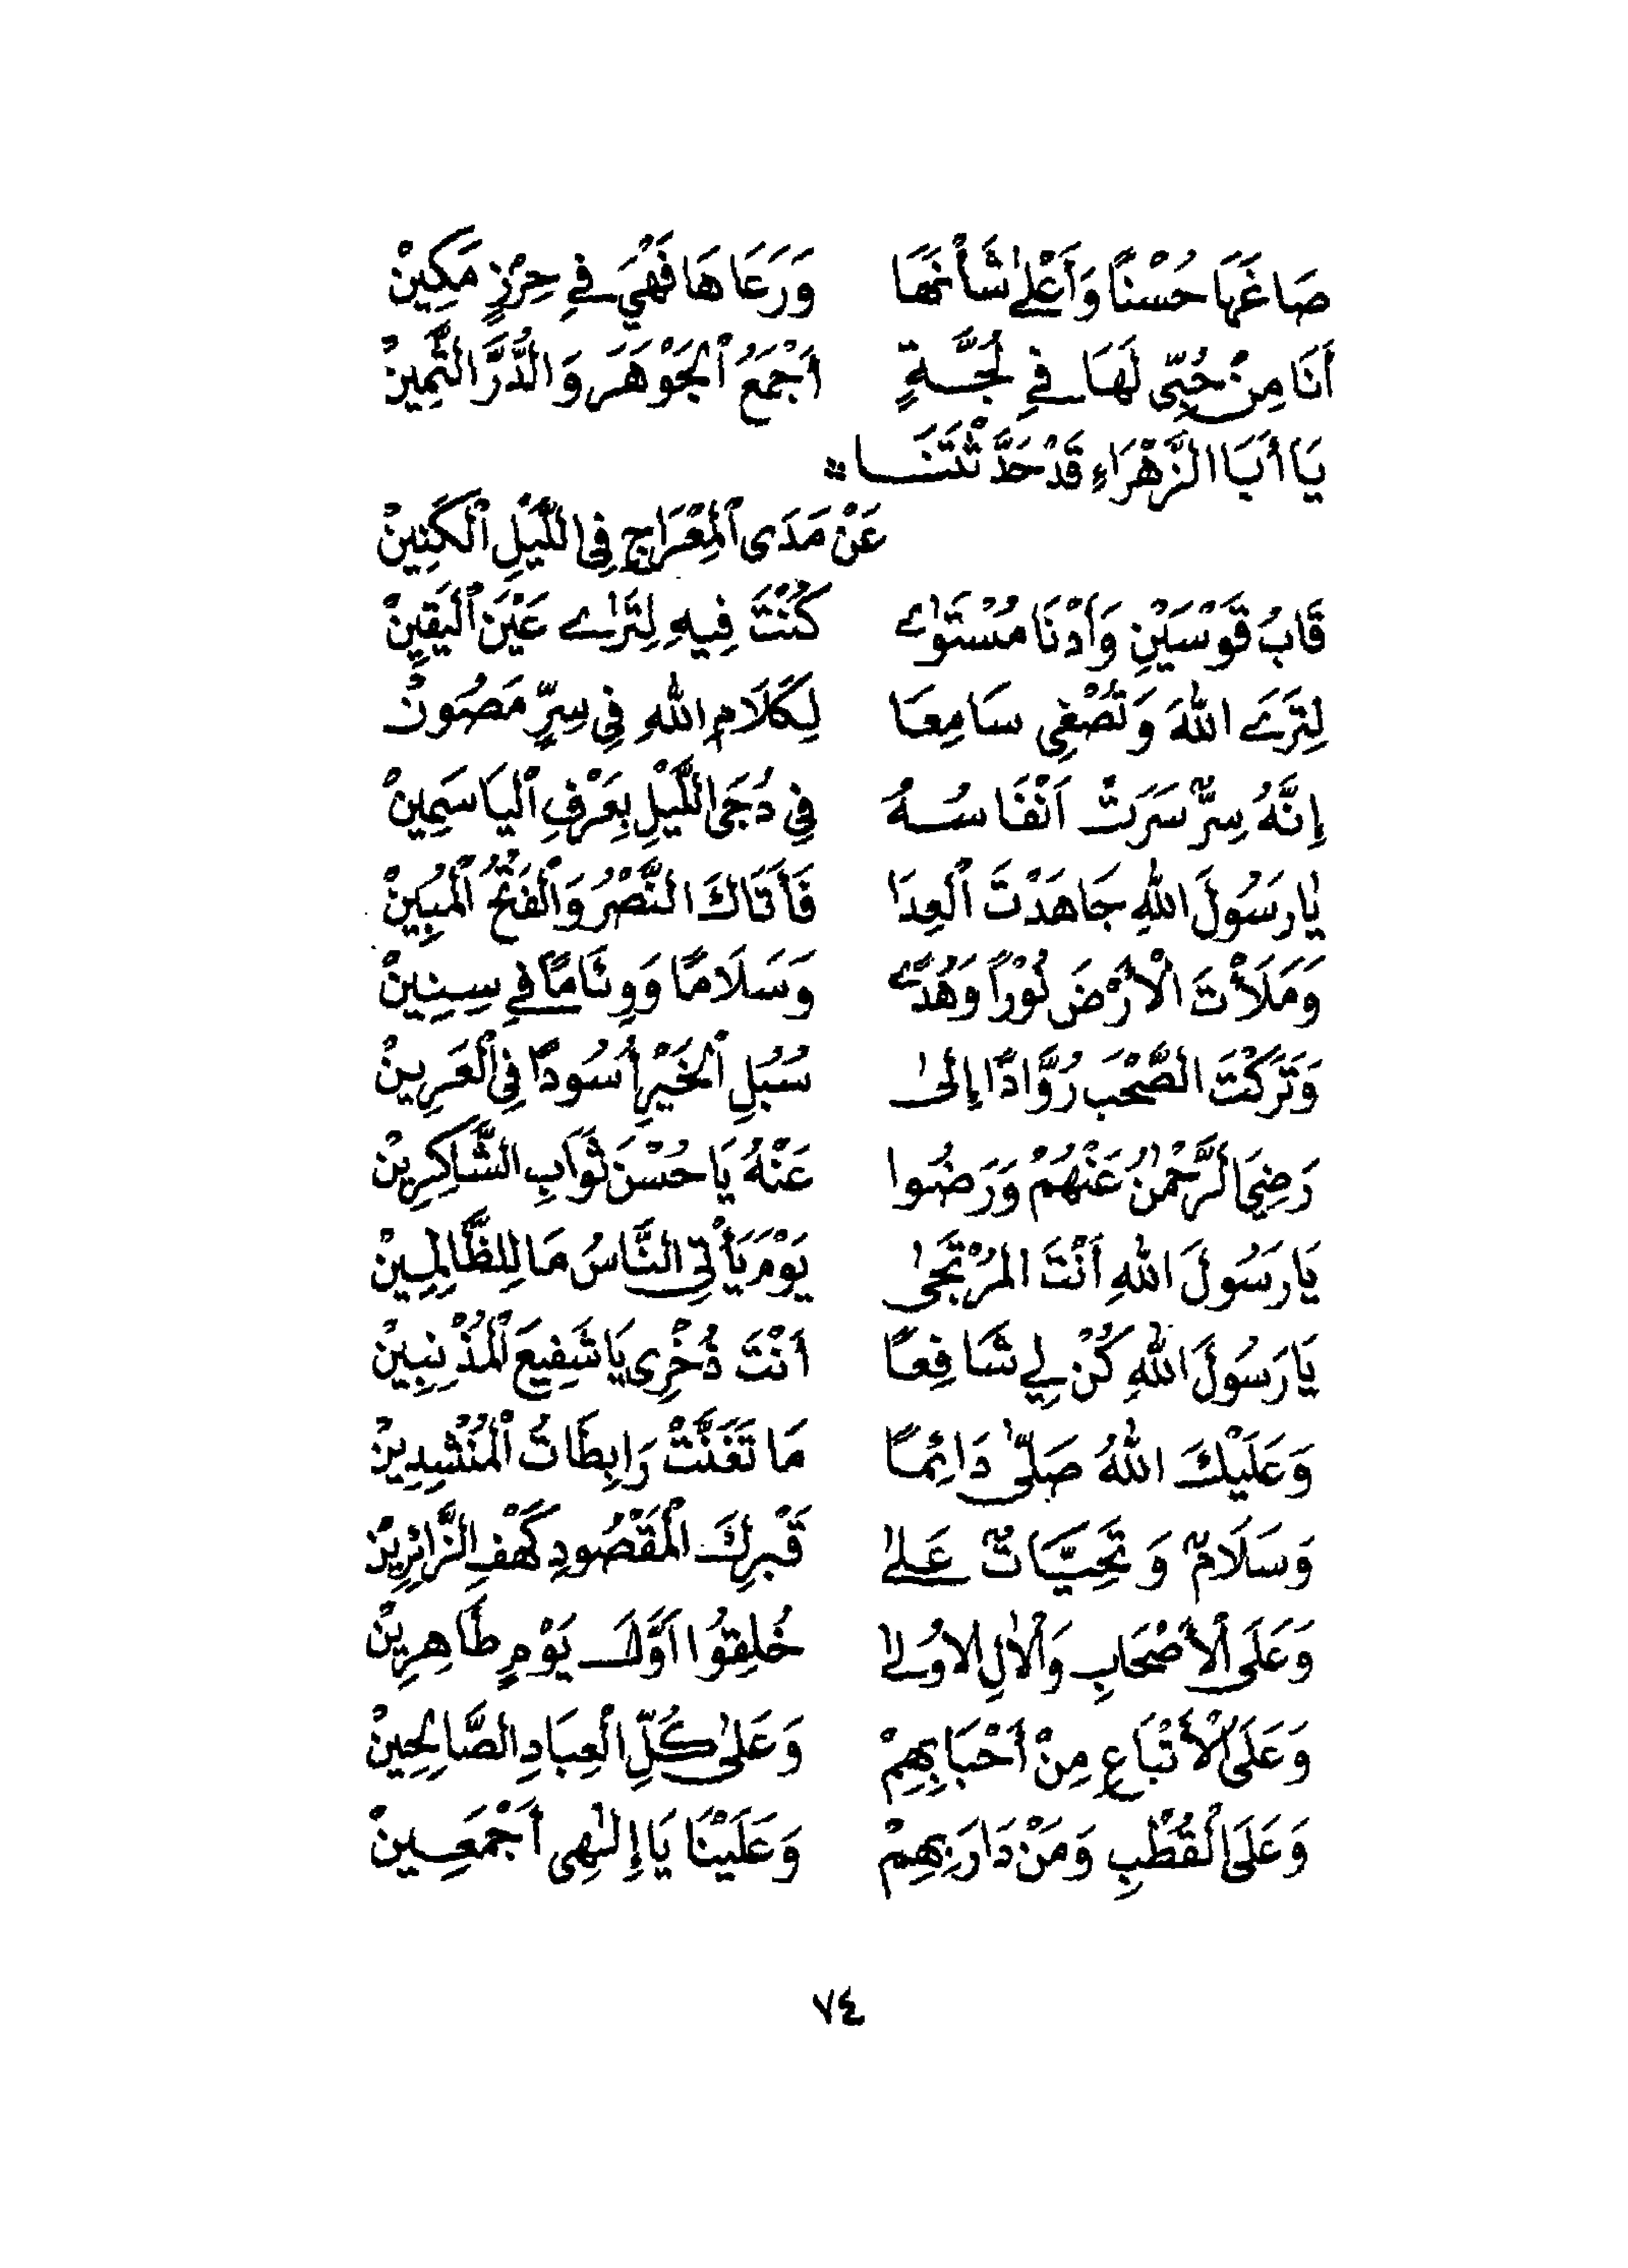 صَاغَهَا حُسْنًا وَأَعْلَىٰ شَأْنَهَا وَرَعَاهَا فَهْيَ فِي حِرْزٍ مَكِينْ
أَنَا مِنْ حُبِّي لَهَا فِي لُجَّةٍ أَجْمَعُ ٱلْجَوْهَرَ وَالدُّرَّ الثَّمِينْ
يَا أَبَا الزَّهْرَاءِ قَدْ حَدَّثْتَنَا
عَنْ مَدَى ٱلْمِعْرَاجِ فِي اللَّيْلِ ٱلْكَنِينْ
قَابُ قَوْسَيْنِ وَأَدْنَا مُسْتَوٰى كُنْتَ فِيهِ لِتَرٰى عَيْنَ ٱلْيَقِينْ
لِتَرَى اللهَ وَتُصْغِي سَامِعَا لِكَلَامِ اللهِ فِي سِرٍّ مَصُونْ
إِنَّهُ سِرٌّ سَرَتْ أَنْفَاسُهُ فِي دُجَى اللَّيْلِ بِعَرْفِ ٱلْيَاسَمِينْ
يٰا رَسُولَ اللهِ جَاهَدْتَ ٱلْعِدَا فَأَتَاكَ النَّصْرُ وَٱلْفَتْحُ ٱلْمُبِينْ
وَمَلَأْتَ ٱلْأَرْضَ نُوْرًا وَهُدًى وَسَلَامًا وَوِئَامًا فِي سِنِينْ
وَتَرَكْتَ الصَّحْبَ رُوَّادًا إِلَىٰ سُبُلِ ٱلْخَيْرِ أُسُودًا فِي ٱلْعَرِينْ
رَضِيَ ٱلرَّحْمٰنُ عَنْهُمْ وَرَضُوا عَنْهُ يَا حُسْنَ ثَوَابِ الشَّاكِرِينْ
يَا رَسُولَ اللهِ أَنْتَ المُرْتَجَىٰ يَوْمَ يَأْتِي النَّاسُ مَا لِلظَّالِمِينْ
يَا رَسُولَ اللهِ كُنْ لِي شَافِعًا أَنْتَ ذُخْرِي يَا شَفِيعَ ٱلْمُذْنِبِينْ
وَعَلَيْكَ اللهُ صَلَّىٰ دَائِمًا مَا تَغَنَّتْ رَابِطَاتُ ٱلْمُنْشِدِينْ
وَسَلَامٌ وَتَحِيَّاتٌ عَلَىٰ قَبْرِكَ ٱلْمَقْصُودِ كَهْفِ الزَّائِرِينْ
وَعَلَى ٱلْأَصْحَابِ وَٱلْاٰلِ الْاُولَىٰ خُلِقُوا أَوَّلَ يَوْمٍ طَاهِرِينْ
وَعَلَى ٱلْأَتْبَاعِ مِنْ أَحْبَابِهِمْ وَعَلَىٰ كُلِّ ٱلْعِبَادِ الصَّالِحِينْ
وَعَلَى ٱلْقُطْبِ وَمَنْ دَارَ بِهِمْ وَعَلَيْنَا يَا إِلٰهِي أَجْمَعِينْ
٧٤